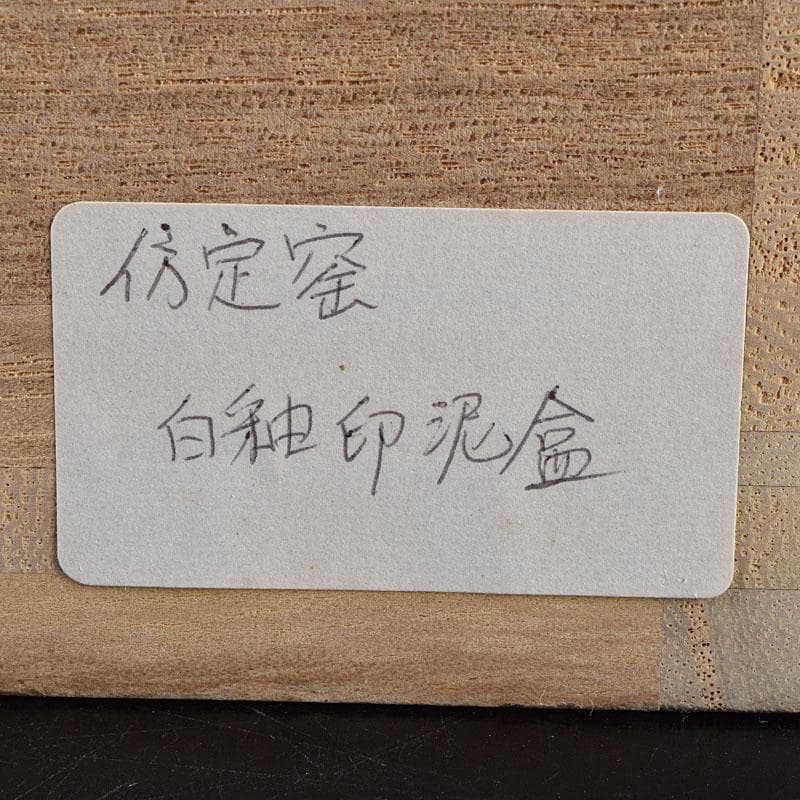 仿定窑
白釉印泥盒